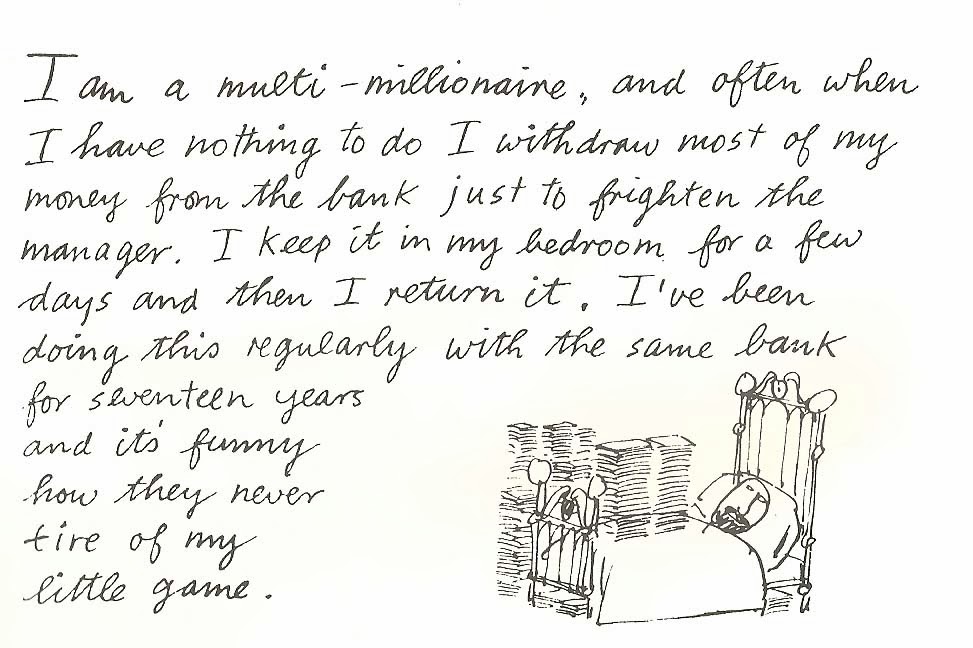 I am a multi-millionaire, and often when
I have nothing to do I withdraw most of my
money from the bank just to frighten the
manager. I keep it in my bedroom for a few
days and then I return it. I've been
doing this regularly with the same bank
for seventeen years
and it's funny
how they never
tire of my
little game.